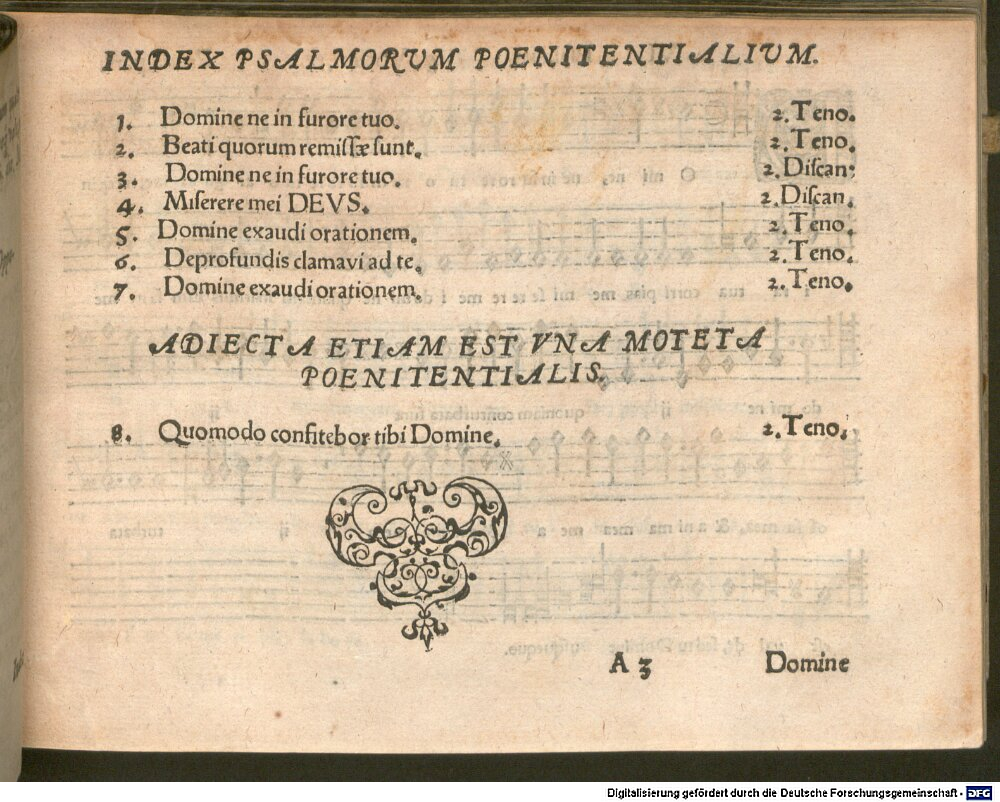 INDEX PSALMORVM POENITENTIALIVM.
1. Domine ne in furore tuo. 2. Teno.
2. Beati quorum remiſſæ ſunt. 2. Teno.
3. Domine ne in furore tuo. 2. Diſcan:
4. Miſerere mei DEVS. 2. Diſcan.
5. Domine exaudi orationem. 2. Teno.
6. Deprofundis clamavi ad te. 2. Teno.
7. Domine exaudi orationem. 2. Teno.
ADIECTA ETIAM EST VNA MOTETA
POENITENTIALIS.
8. Quomodo confitebor tibi Domine. 2. Teno.
A 3 Domine
Digitalisierung gefördert durch die Deutsche Forschungsgemeinschaft - DFG